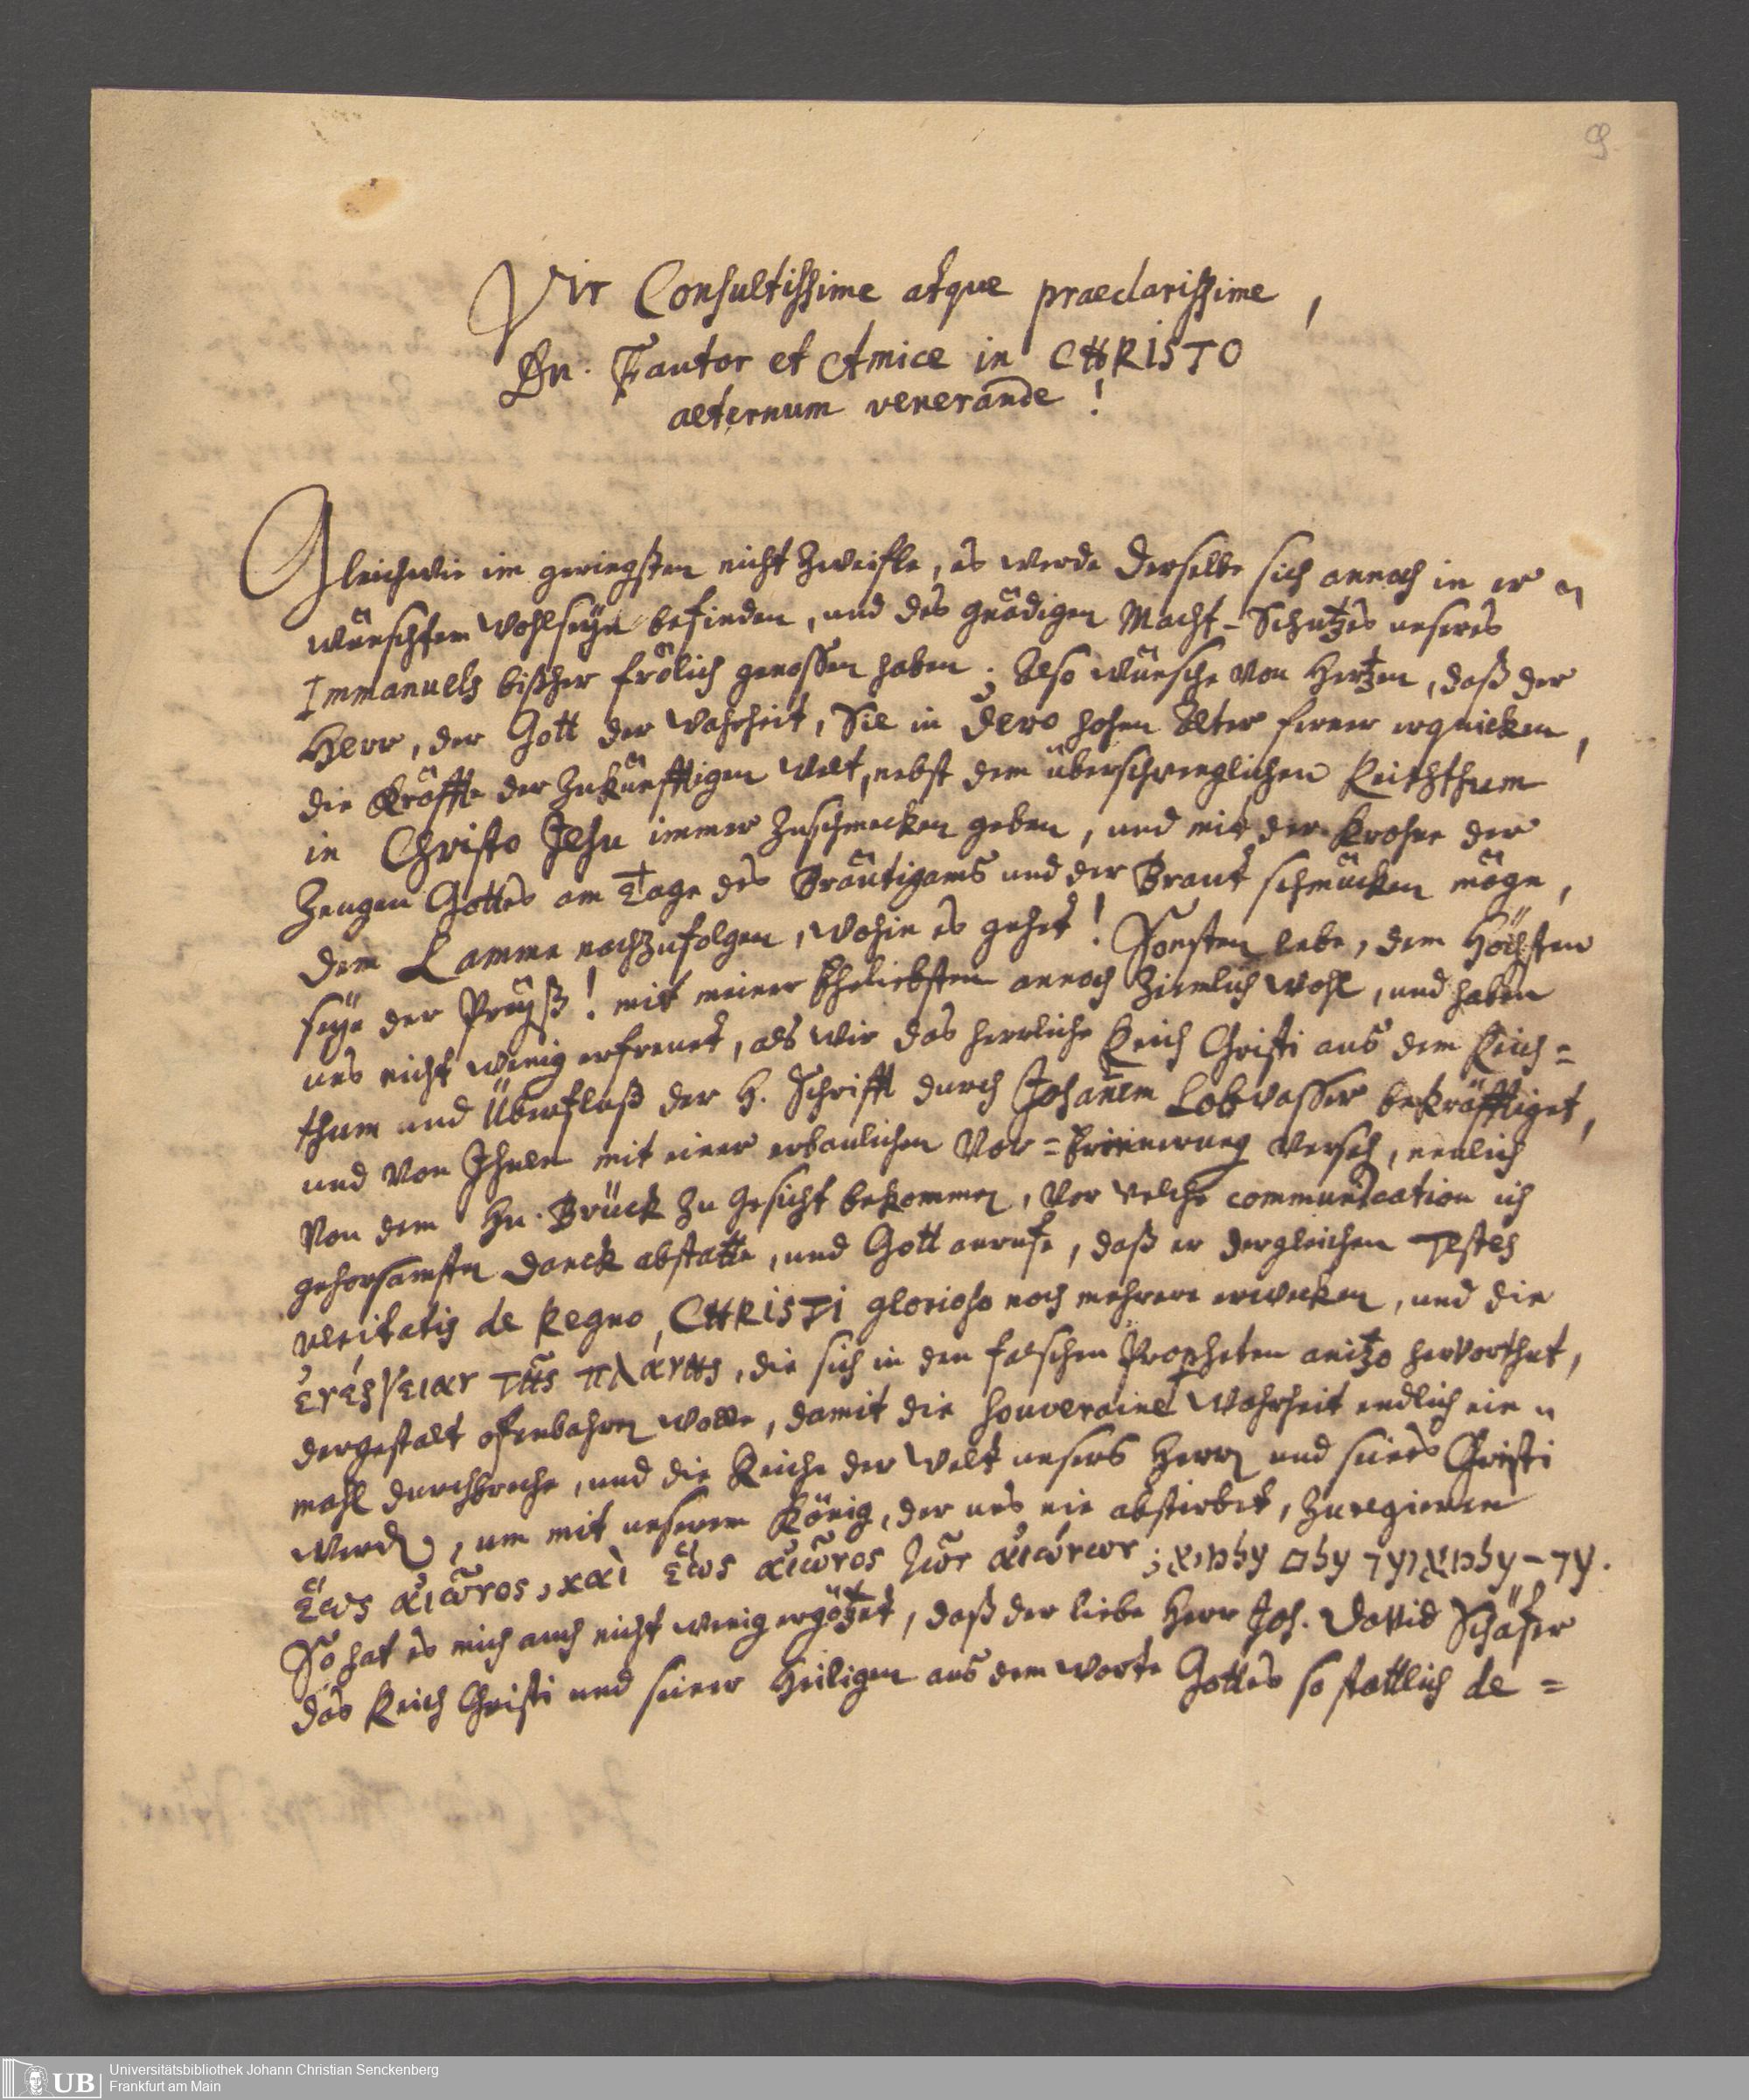 9
Vir Consultissime atque praeclarissime,
Dn. Fautor et Amice in CHRISTO
aeternum venerande!
Gleichwie im geringsten nicht zweifle, es werde Derselbe sich annoch in er-
wünschtem Wohlseyn befinden, und des gnädigen Macht-Schutzes unseres
Immanuels bißher frölich genossen haben; Also wünsche von Hertzen, daß der
Herr, der Gott der Wahrheit, Sie in Dero hohen Alter ferner erquicken,
die Kräffte der zukünfftigen Welt, nebst dem überschwenglichen Reichthum
in Christo Jesu immer zuschmecken geben, und mit der Krohne der
Zeugen Gottes am Tage des Bräutigams und der Braut schmücken möge,
dem Lamme nachzufolgen, wohin es gehet! Sonsten lebe, dem Höchsten
seye der Preyß! mit meiner Eheliebsten annoch ziemlich wohl, und haben
uns nicht wenig erfreuet, als wir das herrliche Reich Christi aus dem Reich=
thum und Überfluß der H. Schrifft durch Johannem Lobwasser bekräfftiget,
und von Ihnen mit einer erbaulichen Vor=Erinnerung verseh, neulich
von dem Hn. Brück zu Gesicht bekommen, vor welche communication ich
gehorsamsten Danck abstatte, und Gott anrufe, daß er dergleichen Testes
veritatis de Regno CHRISTI glorioso noch mehrere erwecken, und die
ἐνέργειαν τῆς πλάνης, die sich in den falschen Propheten anitzo hervorthut,
dergestalt ofenbahren wolle, damit die souveraine Wahrheit endlich ein-
mahl durchbreche, und die Reiche der Welt unsers Herrn und seines Christi
werden, um mit unserem König, der uns nie abstirbet, zuregieren
ἕως αἰῶνος, καὶ ἕως αἰῶνος τῶν αἰώνων; עד-עלמא ועד עלם עלמיא.
So hat es mich auch nicht wenig ergötzet, daß der liebe Herr Joh. David Schäfer
das Reich Christi und seiner Heiligen aus dem Worte Gottes so stattlich de=
UB Universitätsbibliothek Johann Christian Senckenberg
Frankfurt am Main